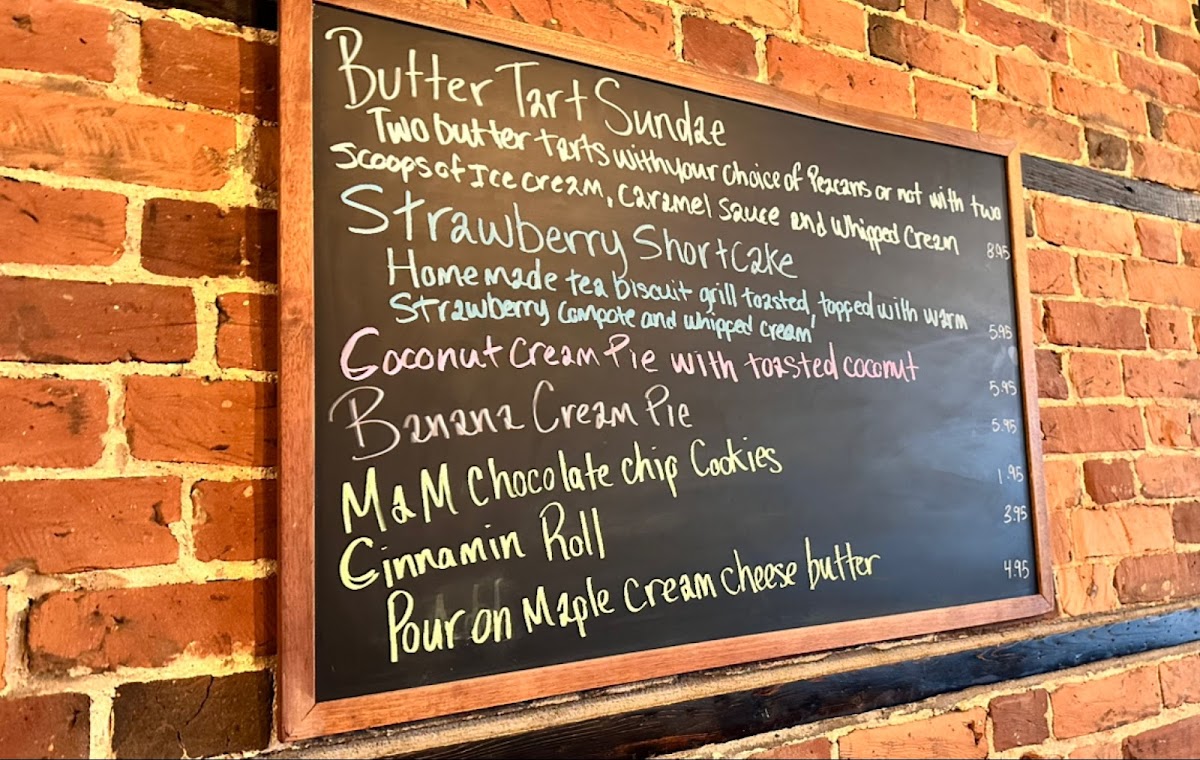 Butter Tart Sundae
Two butter tarts with your choice of Pezcans or not with two
scoops of Ice cream, caramel sauce and whipped cream 8.95
Strawberry Shortcake
Homemade tea biscuit grill toasted, topped with warm
Strawberry Compote and whipped cream 5.95
Coconut Cream Pie with toasted coconut 5.95
Banana Cream Pie 5.95
M&M Chocolate chip Cookies 1.95
Cinnamin Roll 3.95
Pour on Maple cream cheese butter 4.95